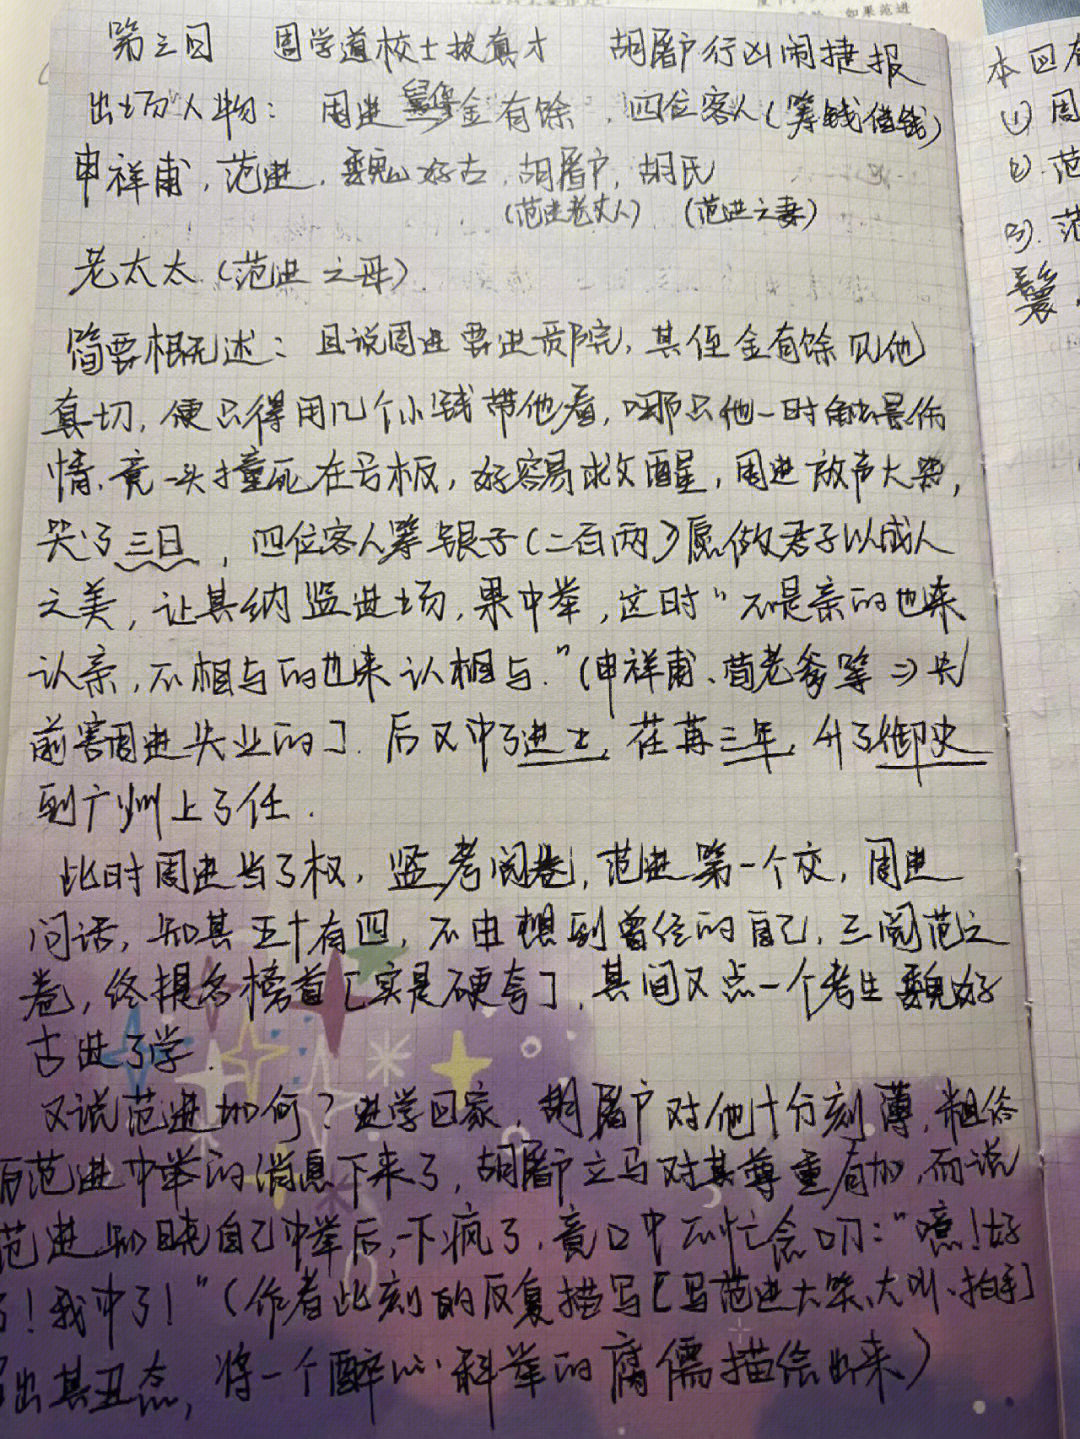 如果范进
第三回 周学道校士拔真才 胡屠户行凶闹捷报
出场人物：周进 金有馀，四位客人（筹钱借钱）
申祥甫，范进，魏好古，胡屠户，胡氏
（范进老丈人） （范进之妻）
老太太（范进之母）
简要概述：且说周进要进贡院，其侄金有馀见他
真切，便只得用几个小钱带他看，哪只他一时触景伤
情，竟一头撞死在号板，好容易救醒，周进放声大哭，
哭了三日，四位客人筹银子（二百两）愿做君子以成人
之美，让其纳监进场，果中举，这时“不是亲的也来
认亲，不相与的也来认相与。”（申祥甫、荀老爹等⇒先
前害周进失业的］后又中了进士，荏苒三年，升了御史
到广州上了任．
此时周进当了权，监考阅卷，范进第一个交，周进
问话，知其五十有四，不由想到曾经的自己，三阅范之
卷，终提名榜首［实是硬夸］，其间又点一个考生魏好
古进了学．
又说范进如何？进学回家，胡屠户对他十分刻薄，粗俗
后范进中举的消息下来了，胡屠户立马对其尊重有加，而说
范进知晓自己中举后，一下疯了，竟口中不忙念叨：“噫！好
了！我中了！”（作者此刻的反复描写［写范进大笑、大叫、拍手］
写出其丑态，将一个醉心科举的腐儒描绘出来）
本回
① 周
② 范
③．范
鬟